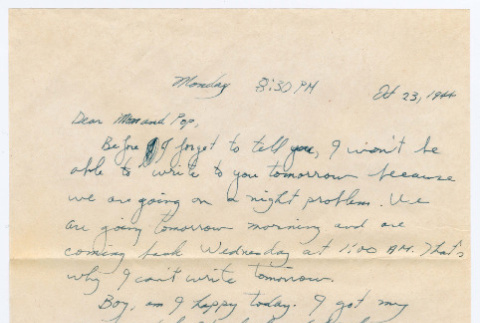 Monday 8:30 PM Oct 23, 1944
Dear Mom and Pop,
Before I forget to tell you, I won't be
able to write to you tomorrow because
we are going on a night problem. We
are going tomorrow morning and are
coming back Wednesday at 1:00 AM. That's
why I can't write tomorrow.
Boy, am I happy today. I got my